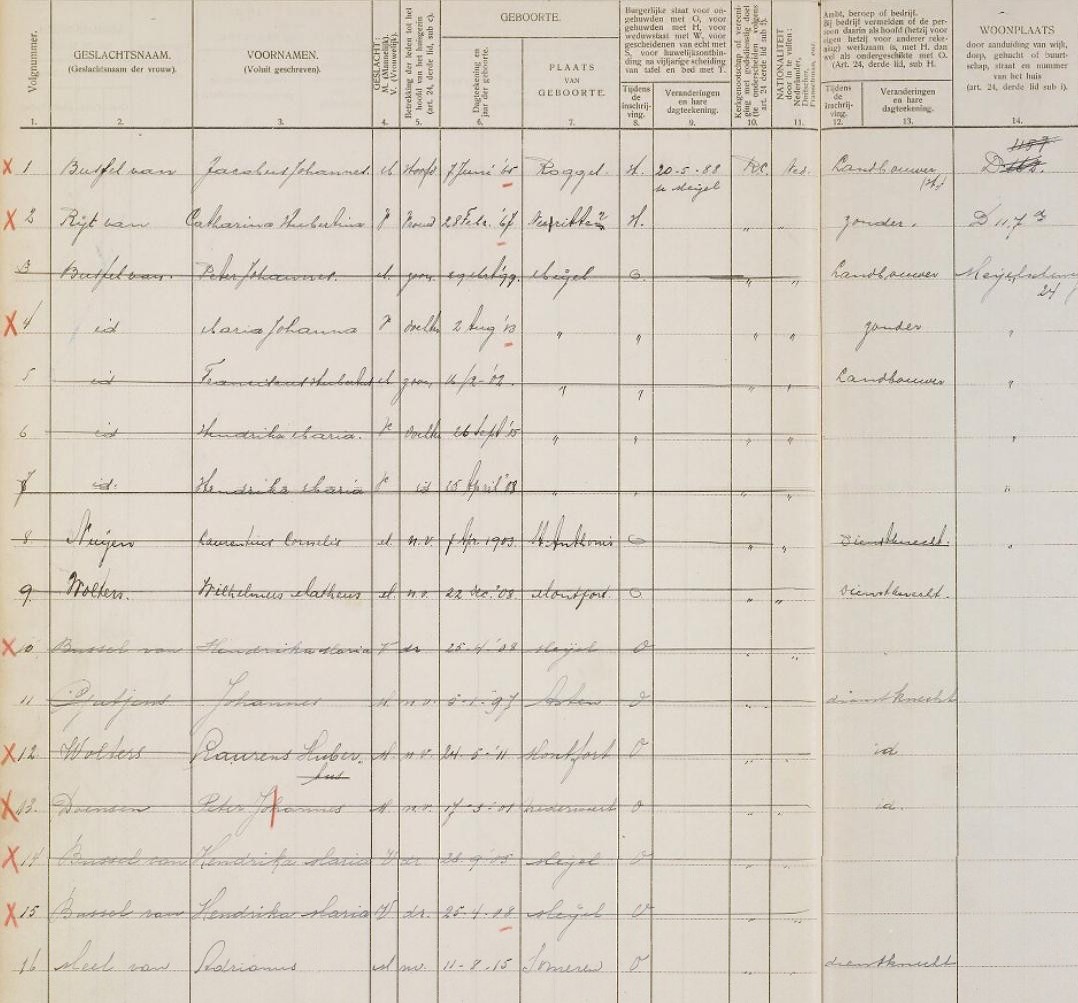 Volgnummer.
GESLACHTSNAAM.
(Geslachtsnaam der vrouw).
VOORNAMEN.
(Voluit geschreven).
GESLACHT:
M. (Mannelijk).
V. (Vrouwelijk).
Betrekking der leden tot het
hoofd van het huisgezin
(art. 24, derde lid, sub c).
GEBOORTE.
Dagteekening en
jaar der geboorte.
PLAATS
VAN
GEBOORTE.
Burgerlijke staat voor on-
gehuwden met O, voor
gehuwden met H, voor
weduwstaat met W, voor
gescheidenen van echt met
S, voor huwelijksontbin-
ding na vijfjarige scheiding
van tafel en bed met T.
Tijdens
de
inschrij-
ving.
Veranderingen
en hare
dagteekening.
Kerkgenootschap of vereeni-
ging met godsdienstig doel
(te onderscheiden volgens
art. 24 derde lid sub i).
NATIONALITEIT
door in te vullen:
Nederlander,
Duitscher,
Franschman, enz.
Ambt, beroep of bedrijf.
Bij bedrijf vermelden of de per-
soon daarin als hoofd (hetzij voor
eigen hetzij voor anderer reke-
ning) werkzaam is, met H. dan
wel als ondergeschikte met O.
(Art. 24, derde lid, sub H.
Tijdens
de
inschrij-
ving.
Veranderingen
en hare
dagteekening.
WOONPLAATS
door aanduiding van wijk,
dorp, gehucht of buurt-
schap, straat en nummer
van het huis
(art. 24, derde lid sub i).
1. 2. 3. 4. 5. 6. 7. 8. 9. 10. 11. 12. 13. 14.
X 1 Bussel van Jacobus Johannes. M Hoofd 7 Juni '65 Roggel. H. 20-5-88 R.C. Ned. Landbouwer D
te Meijel (H.)
X 2 Rijt van Catharina Hubertina V Vrouw 28 Febr. '67 H. " " zonder. D 117
3 Bussel van. Peter Johannes. M. zoon '99 Meijel O. " " Landbouwer
24
X 4 id Maria Johanna V 2 Aug " " " " zonder "
5 id Franciscus Hubertus M zoon, 16/2-'02. " " " " Landbouwer "
6 id Hendrika Maria. V 26 Sept '05 " " " " "
7 id. Hendrika Maria V id 25 April '08 " " " " "
8 Nuijen Laurentius Cornelis M. n.v. 7 Apr. 1903 St. Anthonis O " " Dienstknecht. "
9 Wolters. Wilhelmus Matheus M. n.v. 22 Dec. '08. Montfort. O " " Dienstknecht.
X 10 Bussel van Hendrika Maria V dr 25-4-'08 Meijel O " "
11 Johannes M n.v. 5-1-'97 Asten O " " dienstknecht
X 12 Wolters Laurens Huber- M. n.v. 24-5-'11 Montfort O " " id
tus
X 13. Doensen Peter Johannes M n.v. 17-3-'01 Nederweert O " " id.
X 14 Bussel van Hendrika Maria V dr 26-9-'05 Meijel O " "
X 15 Bussel van Hendrika Maria V dr. 25-4-08 Meijel O " "
16 Meel van Adrianus M nv. 11-8-15 Someren O " " dienstknecht